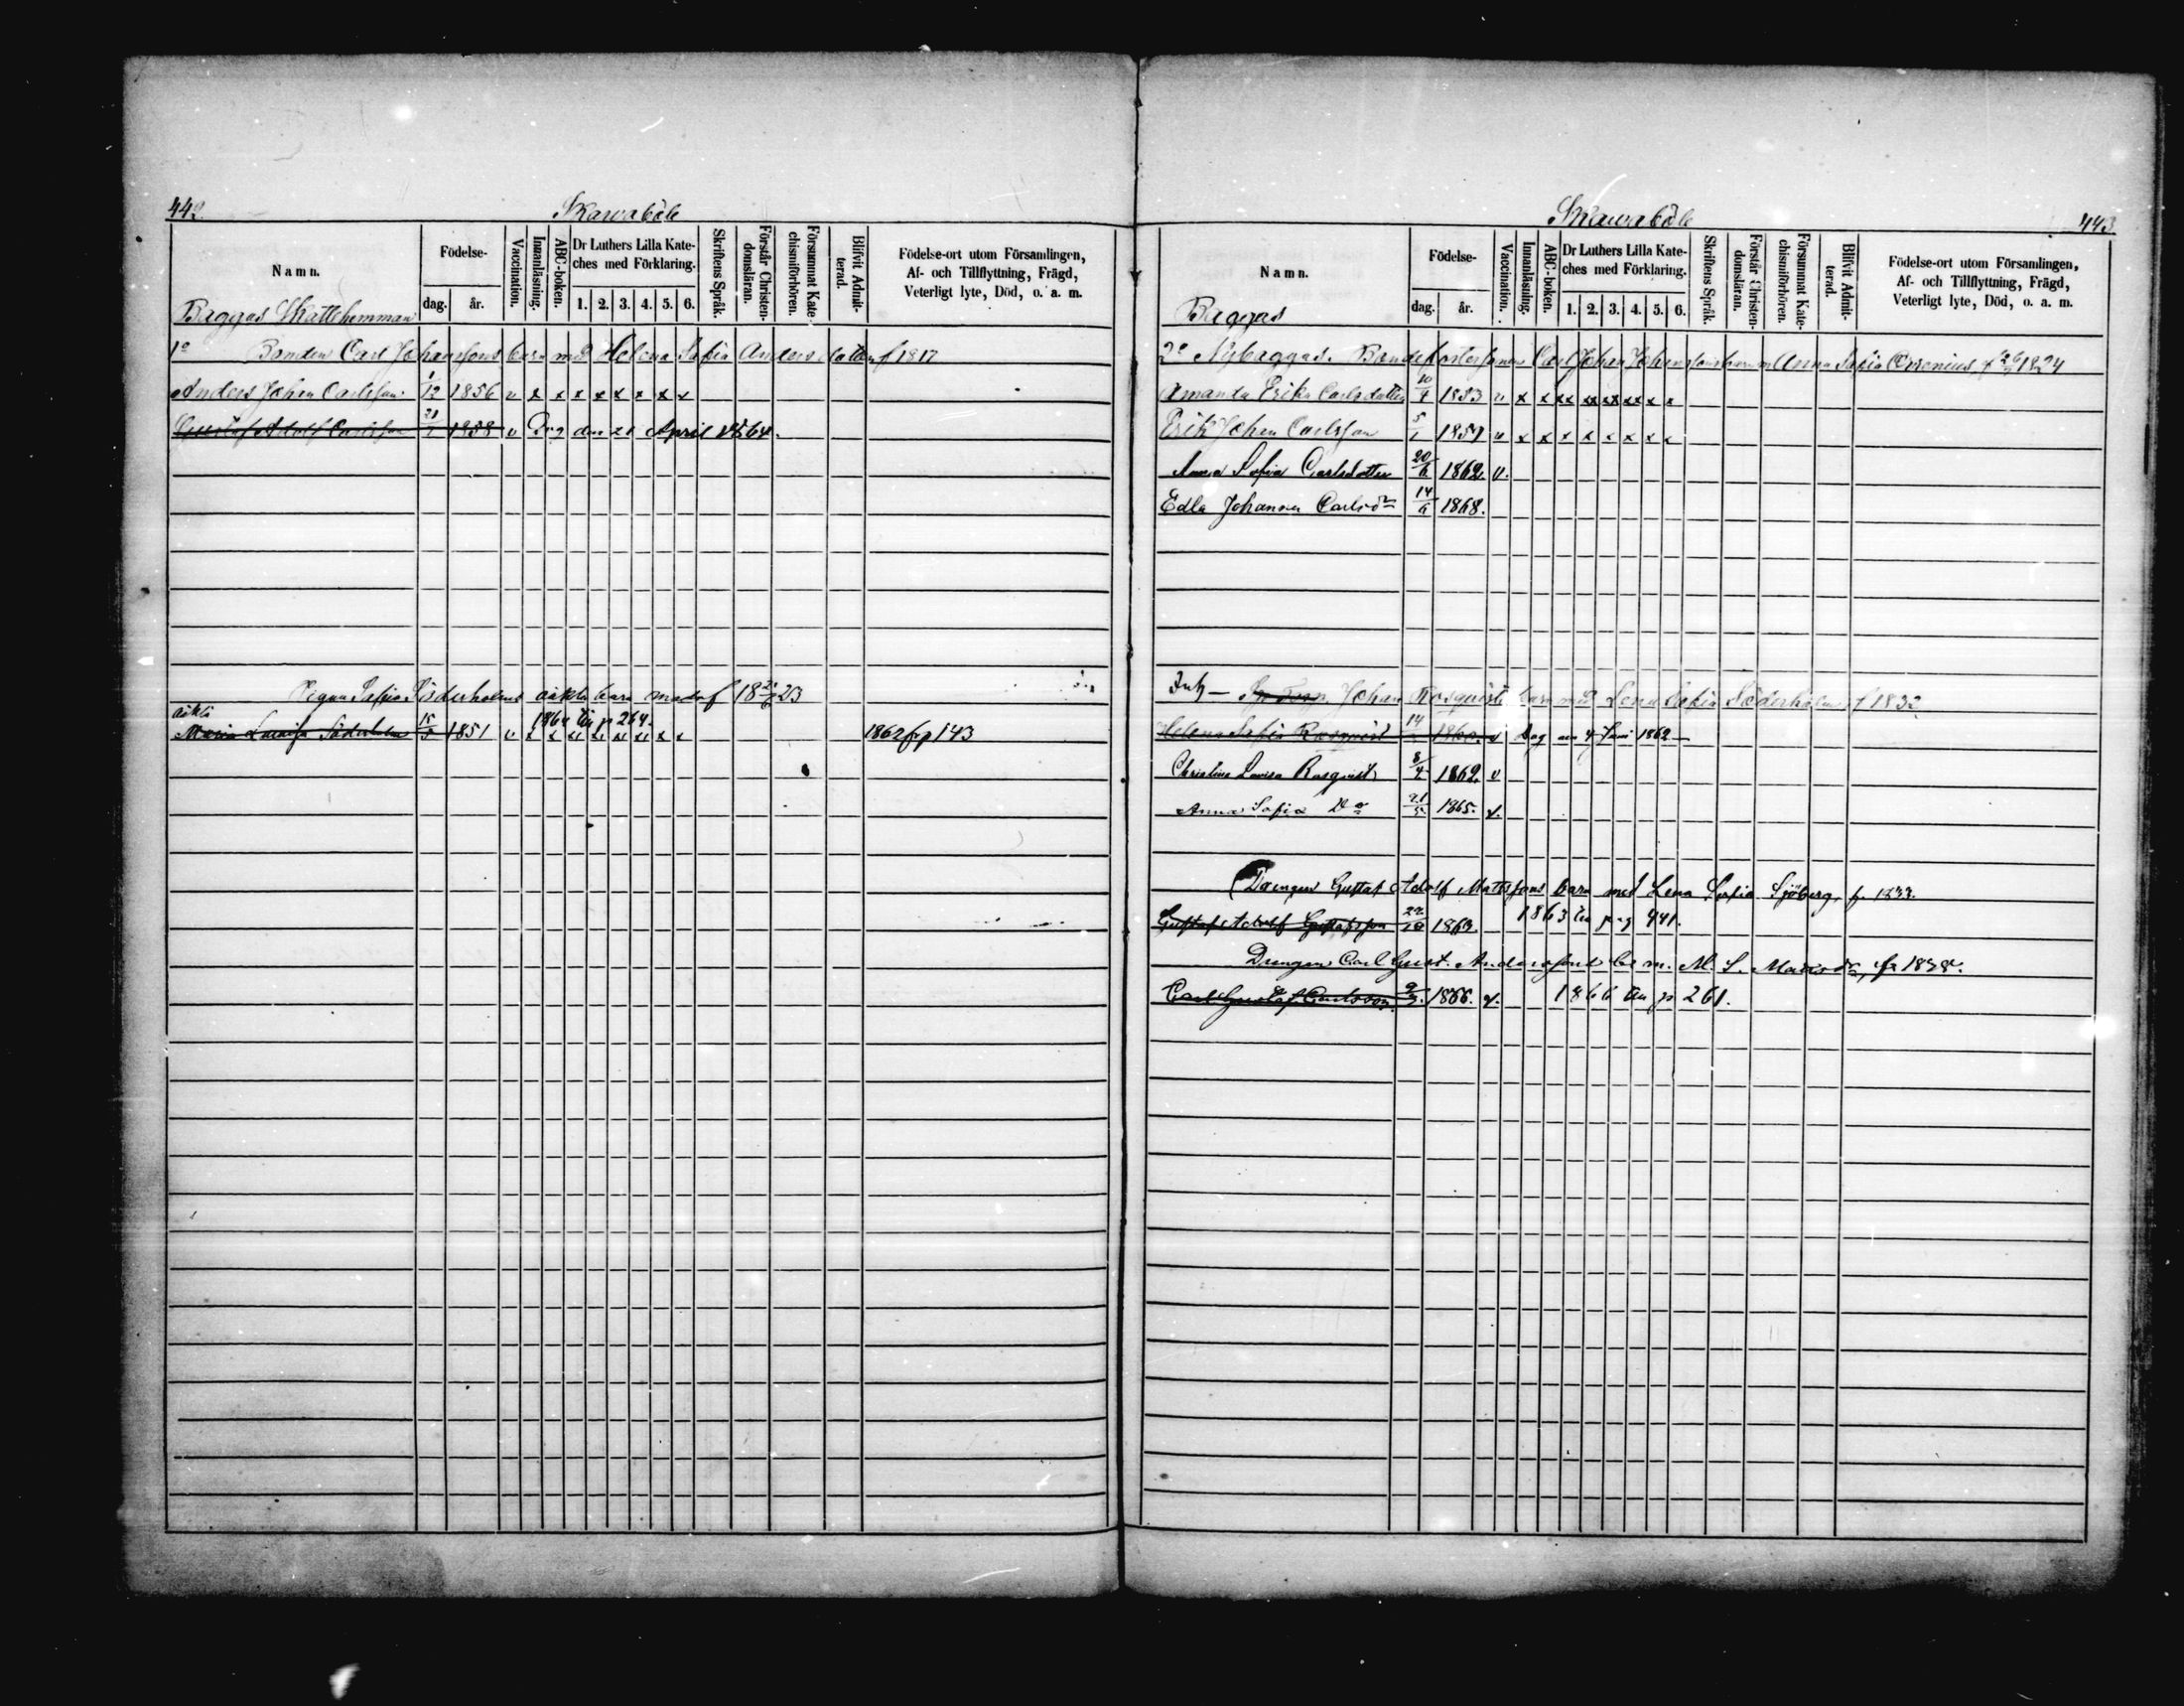 442
Skarvaböle
Namn.
Födelse-
dag. år.
Vaccination.
Innanläsning.
ABC-boken.
Dr Luthers Lilla Kate-
ches med Förklaring.
1. 2. 3. 4. 5. 6.
Skriftens Språk.
Förstår Christen-
domsläran.
Försummat Kate-
chismiförhören.
Blifvit Admit-
terad.
Födelse-ort utom Församlingen,
Af- och Tillflyttning, Frägd,
Veterligt lyte, Död, o. a. m.
Baggas Skattehemman
1o Bonden Carl Johanssons barn med Helena Sofia Andersdotter f 1817
Anders Johan Carlsson 1/12 1856 v x x x x x x x x
Gustaf Adolf Carlsson 21/ 1858 v Dog den 21 April 1864.
Pigan Sofia Söderholms oäkta barn
oäkta
Maria Lovisa Söderholm 15/5 1851 v 1864 till p 264. 1862 fr p 143
Skarvaböle
443
Namn.
Födelse-
dag. år.
Vaccination.
Innanläsning.
ABC-boken.
Dr Luthers Lilla Kate-
ches med Förklaring.
1. 2. 3. 4. 5. 6.
Skriftens Språk.
Förstår Christen-
domsläran.
Försummat Kate-
chismiförhören.
Blifvit Admit-
terad.
Födelse-ort utom Församlingen,
Af- och Tillflyttning, Frägd,
Veterligt lyte, Död, o. a. m.
Baggas
2o Nybaggas. Carl Johan Johanssons barn m Anna Sofia 1824
Amanda Erika Carlsdotter 10/7 1853 v x x xx xx xx xx x x
Erik Johan Carlsson 5/1 1857 v x x x x x x x x
Anna Sofia Carlsdotter 20/6 1862. v.
Edla Johanna Carlsdr 14/6 1868.
Johan Rosqvists barn med Lena Sofia Söderholm f 1832
Helena Sofia Rosqvist 14/ 1860. v Dog den 4 Juni 1862
Christina Lovisa Rosqvist 8/4 1862. v
Anna Sofia Do 21/5 1865. v.
Drengen Gustaf Adolf Mattssons barn med Lena Sofia Sjöberg, f. 1833.
Gustaf Adolf Gustafsson 22/12 1863. 1863 till pag 441.
Drengen Carl Gust. Anderssons br m. M. S. Matsdr, f. 1838.
Carl Gustaf Carlsson 9/3. 1866. v. 1866 till p 261.